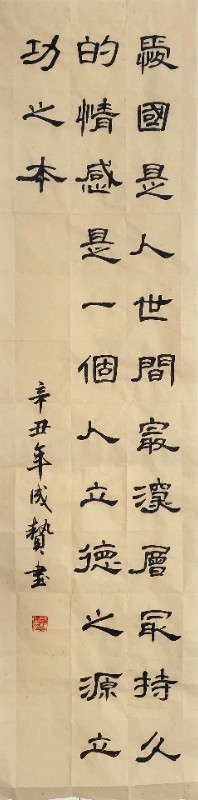 愛國是人世間最深層最持久
的情感是一個人立德之源立
功之本
辛丑年成贊書